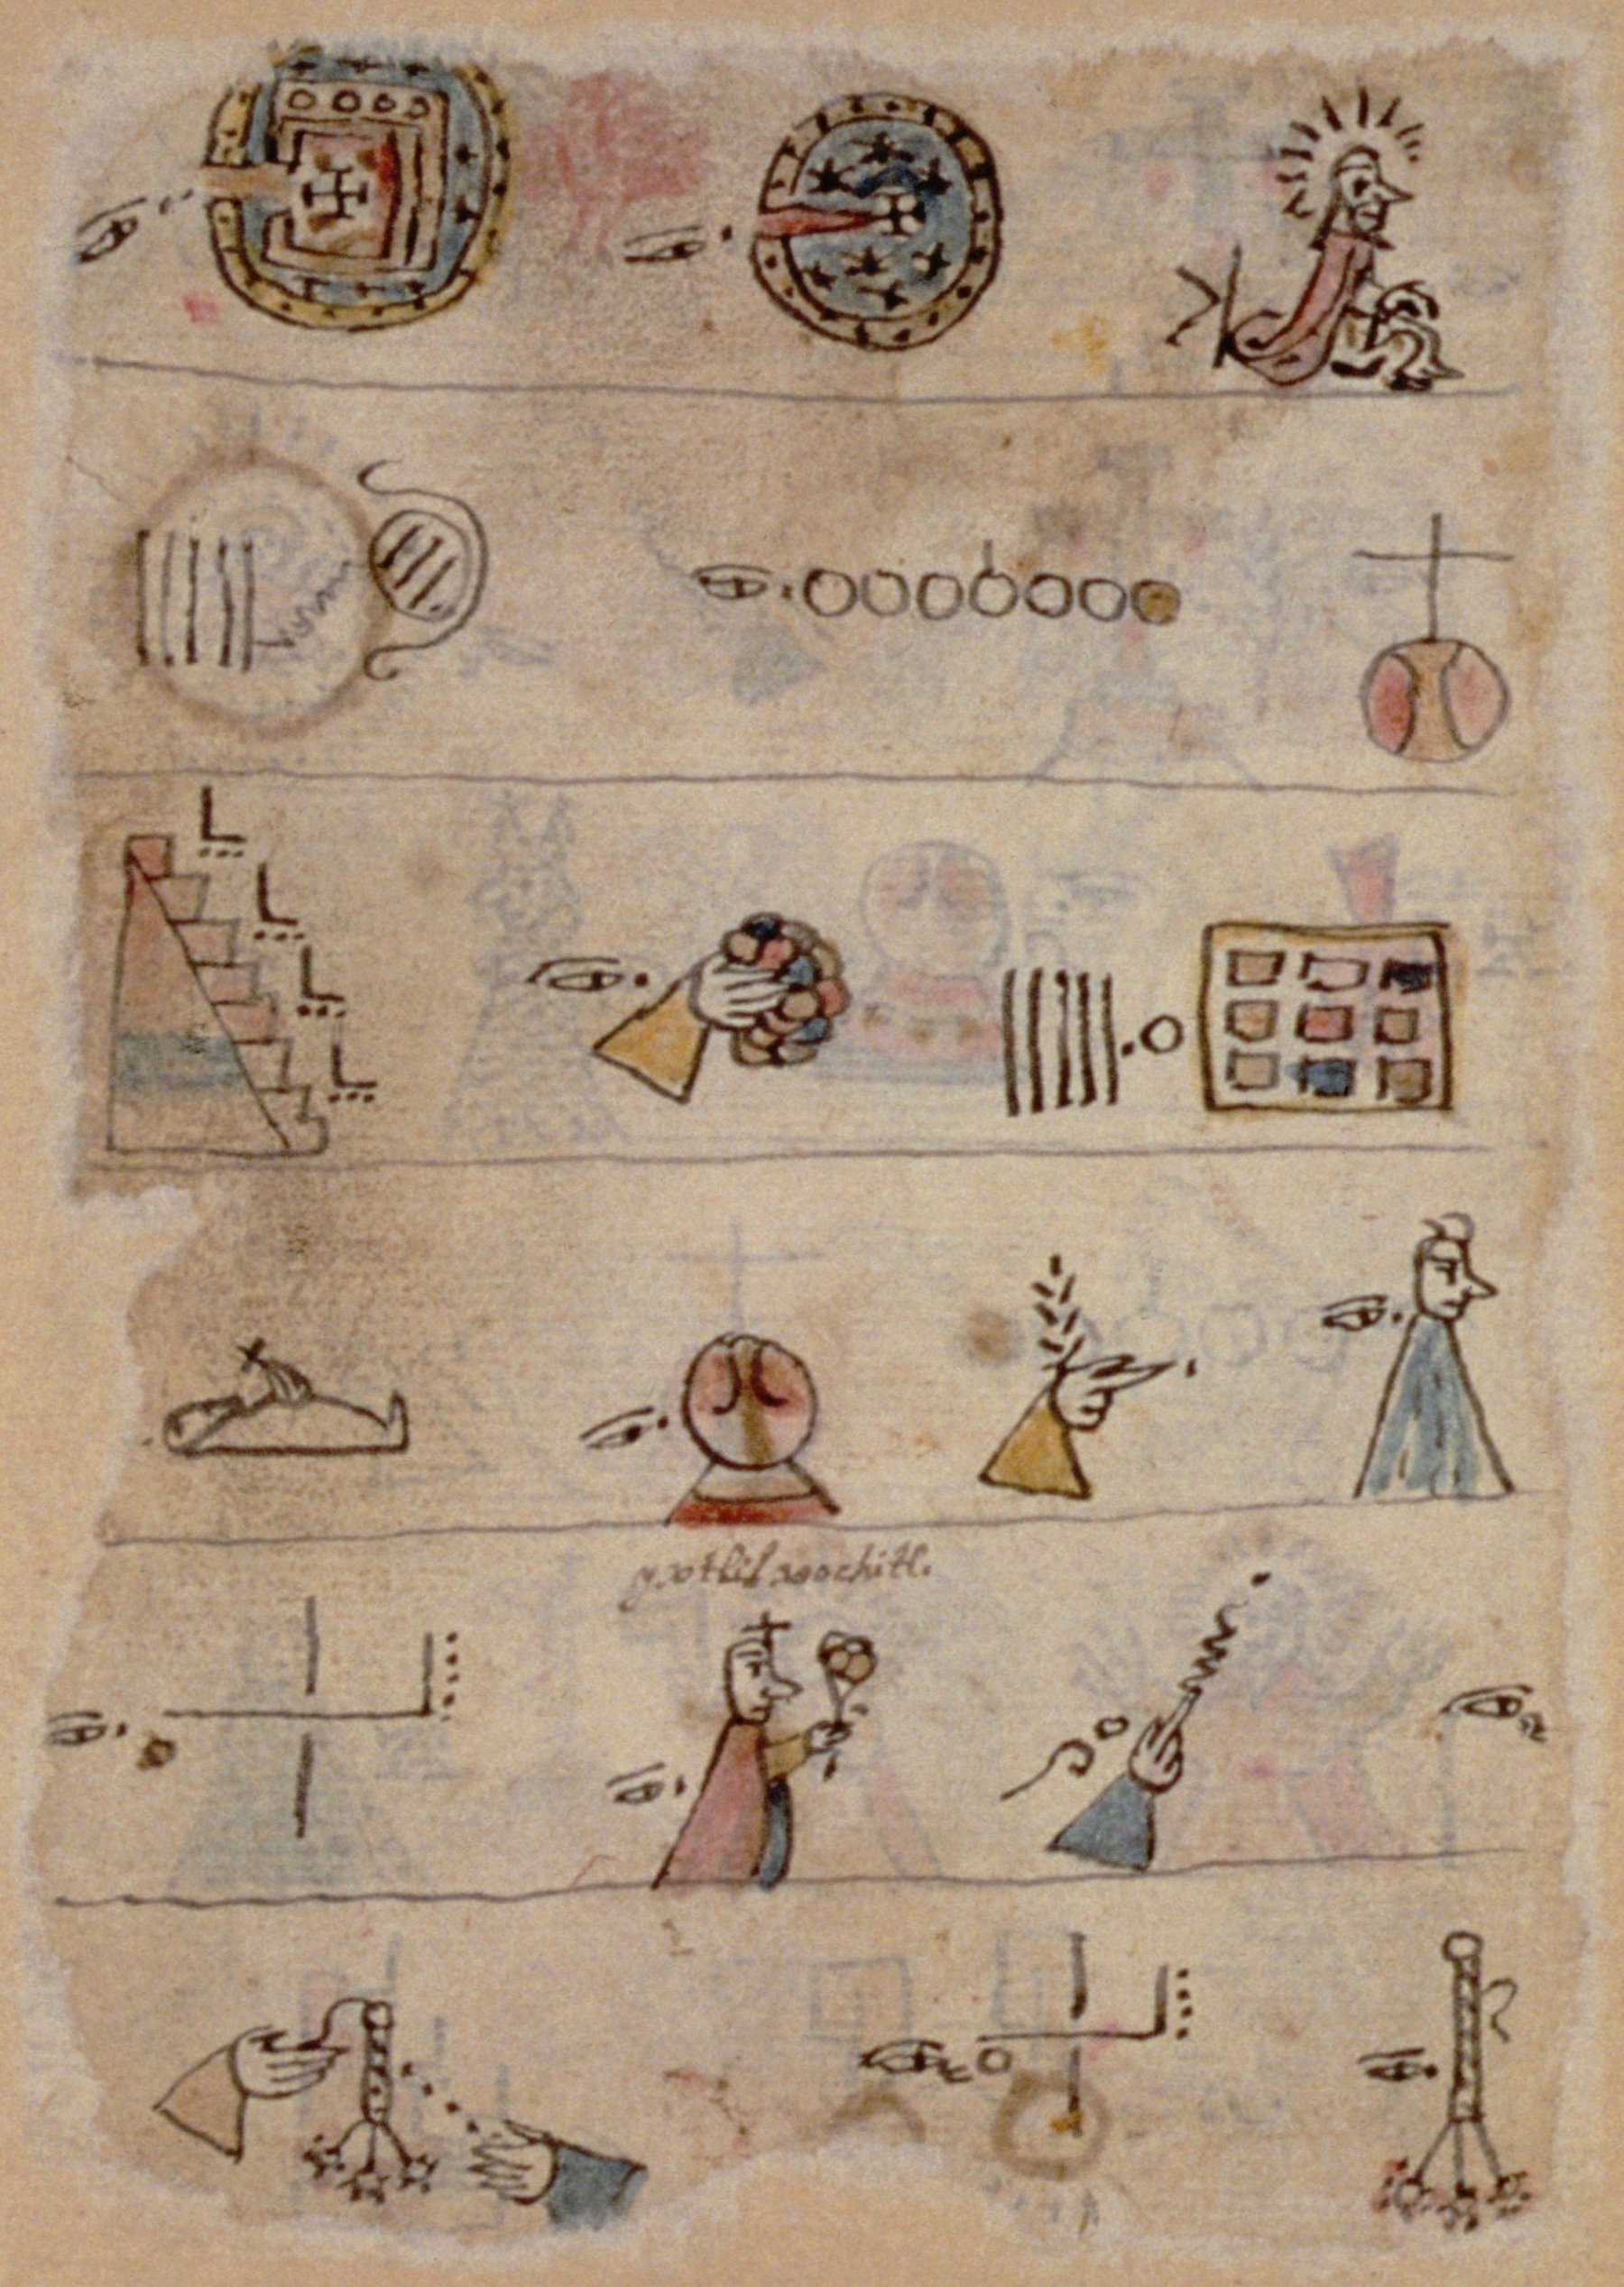 yxtlil xochitl.